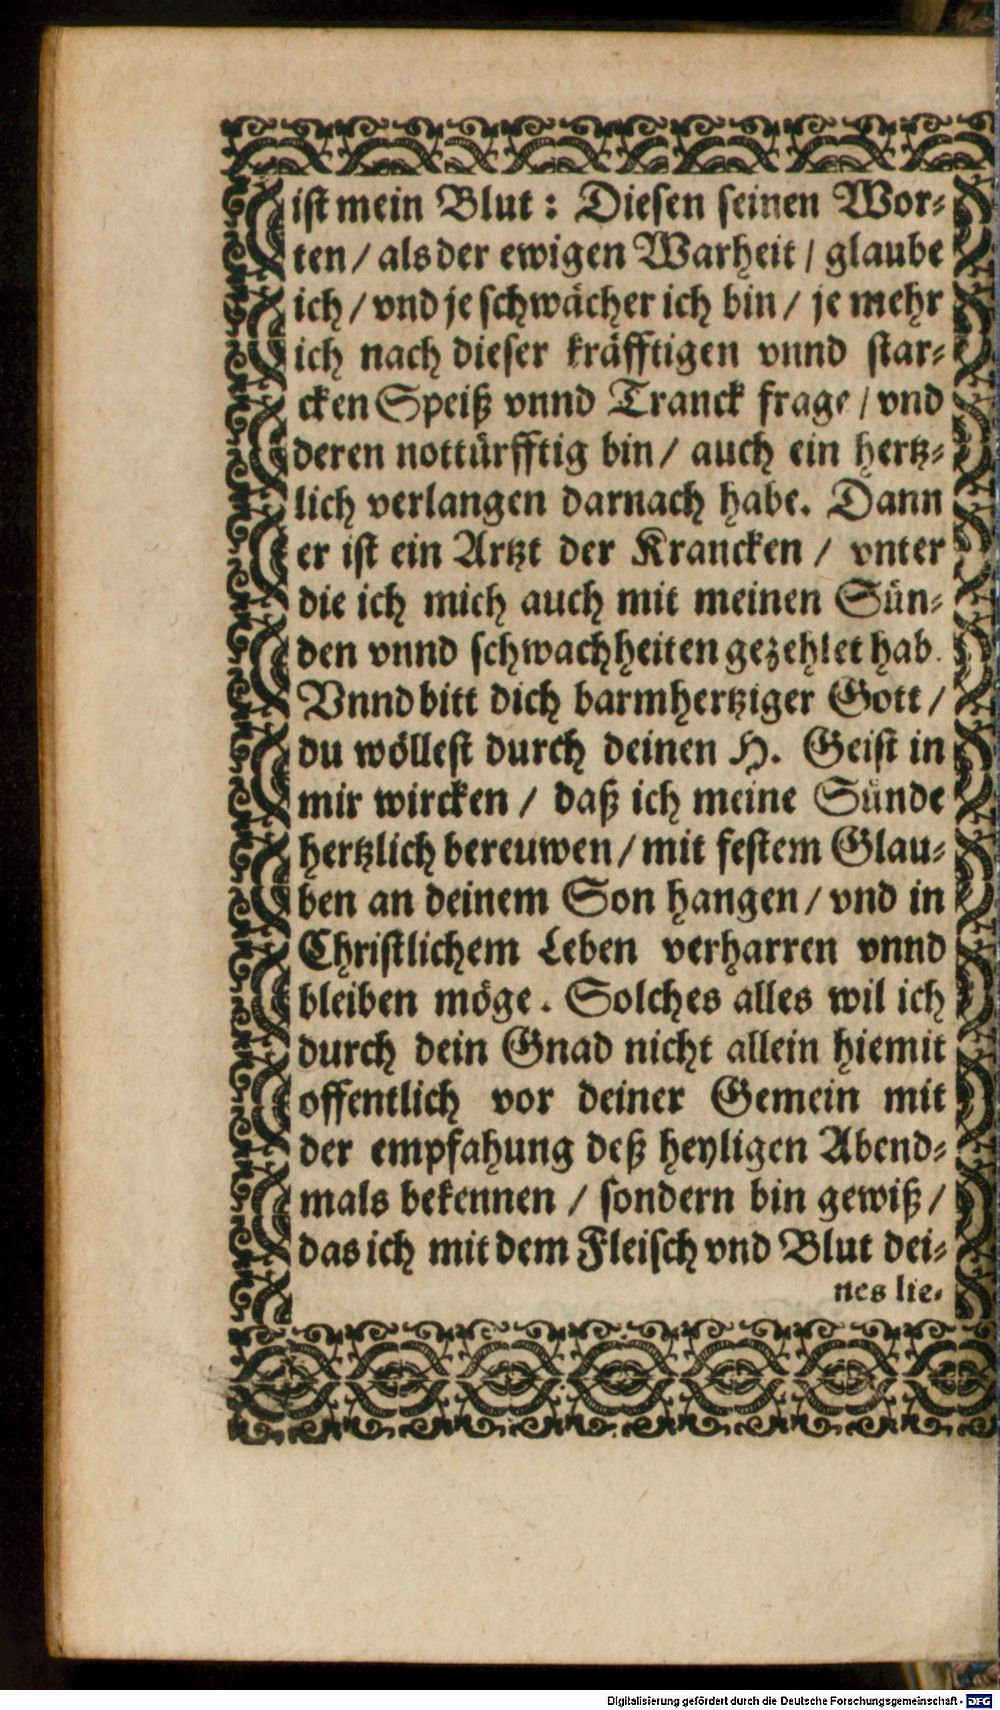 ist mein Blut: Diesen seinen Wor-
ten / als der ewigen Warheit / glaube
ich / vnd je schwächer ich bin / je mehr
ich nach dieser kräfftigen vnnd star-
cken Speiß vnnd Tranck frage / vnd
deren nottürfftig bin / auch ein hertz-
lich verlangen darnach habe. Dann
er ist ein Artzt der Krancken / vnter
die ich mich auch mit meinen Sün-
den vnnd schwachheiten gezehlet hab.
Vnnd bitt dich barmhertziger Gott /
du wöllest durch deinen H. Geist in
mir wircken / daß ich meine Sünde
hertzlich bereuwen / mit festem Glau-
ben an deinem Son hangen / vnd in
Christlichem Leben verharren vnnd
bleiben möge. Solches alles wil ich
durch dein Gnad nicht allein hiemit
offentlich vor deiner Gemein mit
der empfahung deß heyligen Abend-
mals bekennen / sondern bin gewiß /
das ich mit dem Fleisch vnd Blut dei-
nes lie-
Digitalisierung gefördert durch die Deutsche Forschungsgemeinschaft - DFG